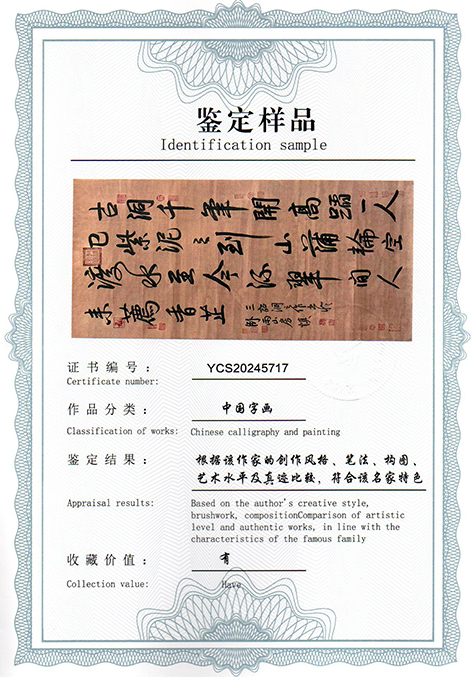 鉴定样品
Identification sample
古洞千年開高蹈一人
已紫泥三到山蒲輪空
水至今 翠間人
來薦香芷
证书编号： YCS20245717
Certificate number:
作品分类： 中国字画
Classification of works: Chinese calligraphy and painting
鉴定结果： 根据该作家的创作风格、笔法、构图、
艺术水平及真迹比较，符合该名家特色
Appraisal results: Based on the author's creative style,
brushwork, compositionComparison of artistic
level and authentic works, in line with the
characteristics of the famous family
收藏价值： 有
Collection value: Have